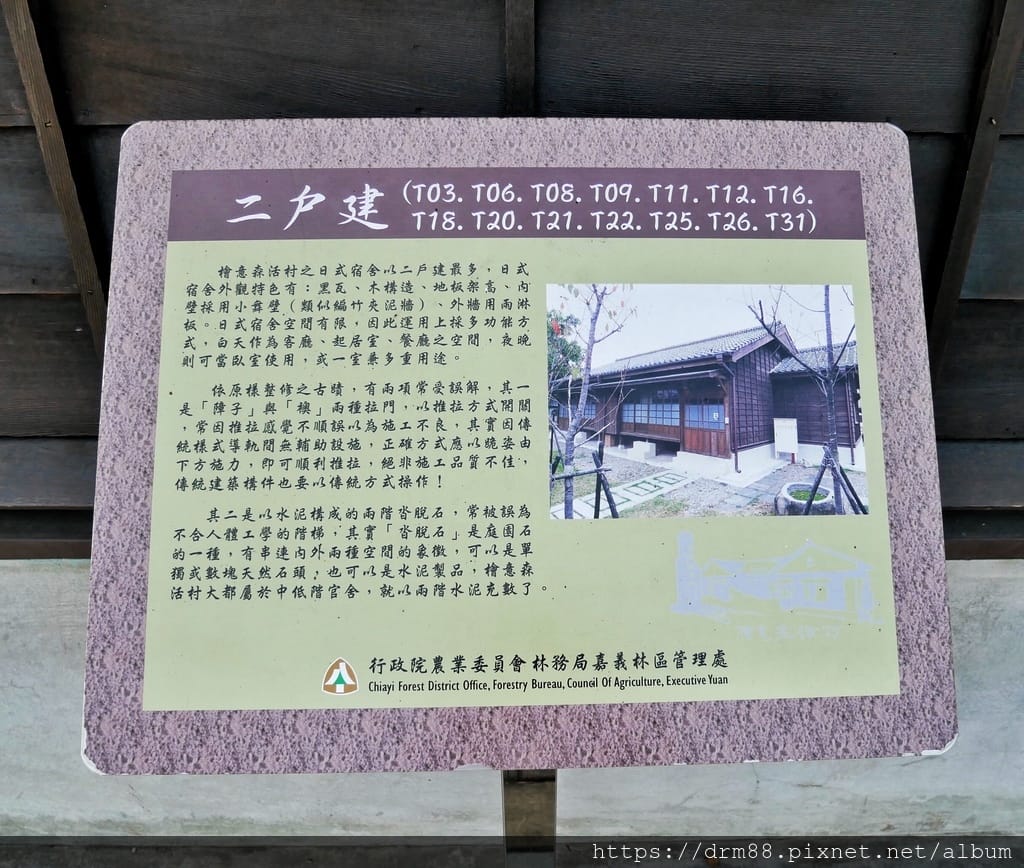 二戶建 (T03. T06. T08. T09. T11. T12. T16.
T18. T20. T21. T22. T25. T26. T31)
檜意森活村之日式宿舍以二戶建最多，日式
宿舍外觀特色有：黑瓦、木構造、地板架高、內
壁採用小舞壁（類似編竹夾泥牆）、外牆用雨淋
板。日式宿舍空間有限，因此運用上採多功能方
式，白天作為客廳、起居室、餐廳之空間，夜晚
則可當臥室使用，或一室兼多重用途。
依原樣整修之古蹟，有兩項常受誤解，其一
是「障子」與「襖」兩種拉門，以推拉方式開關
，常因推拉感覺不順誤以為施工不良，其實因傳
統樣式導軌間無輔助設施，正確方式應以跪姿由
下方施力，即可順利推拉，絕非施工品質不佳，
傳統建築構件也要以傳統方式操作！
其二是以水泥構成的兩階沓脫石，常被誤為
不合人體工學的階梯，其實「沓脫石」是庭園石
的一種，有串連內外兩種空間的象徵，可以是單
獨或數塊天然石頭，也可以是水泥製品，檜意森
活村大都屬於中低階官舍，就以兩階水泥充數了。
行政院農業委員會林務局嘉義林區管理處
Chiayi Forest District Office, Forestry Bureau, Council Of Agriculture, Executive Yuan
https://drm88.pixnet.net/album